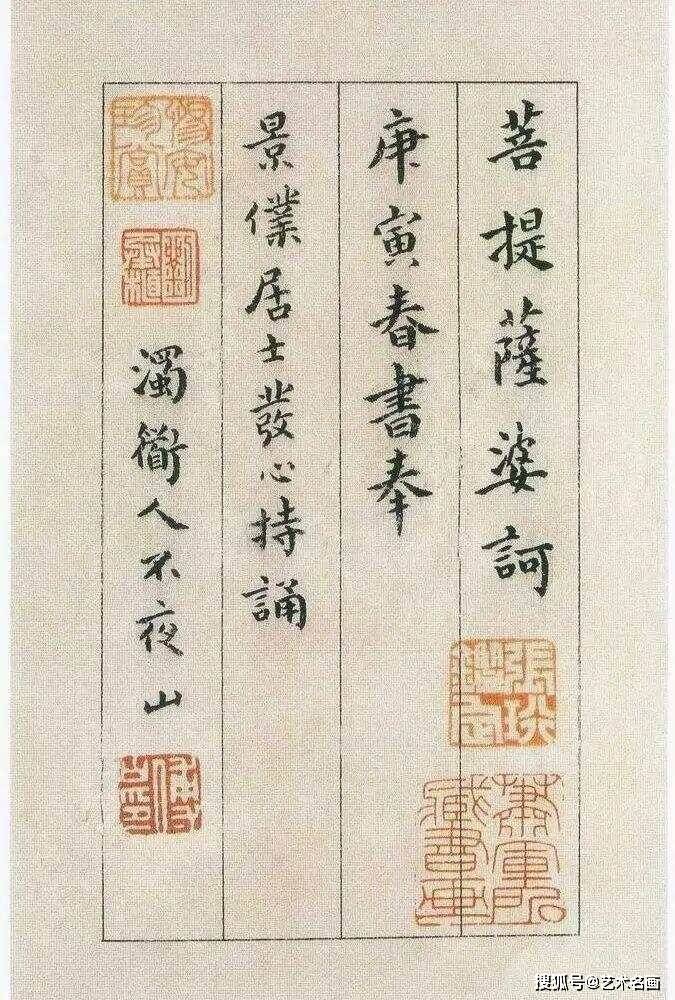 菩提薩婆訶
庚寅春書奉
景僕居士發心持誦
濁衜人不夜山
搜狐号@艺术名画